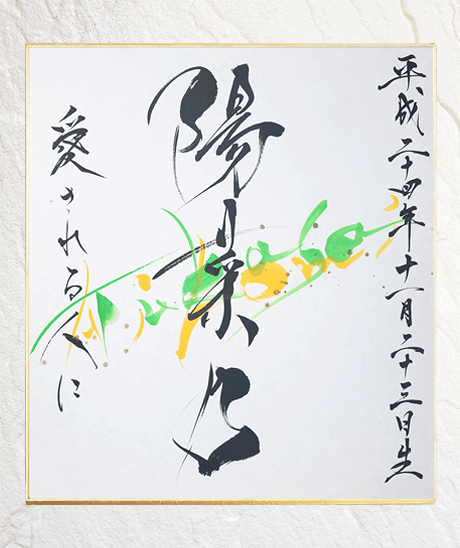 平成二十四年十一月二十三日生
陽菜
愛される人に